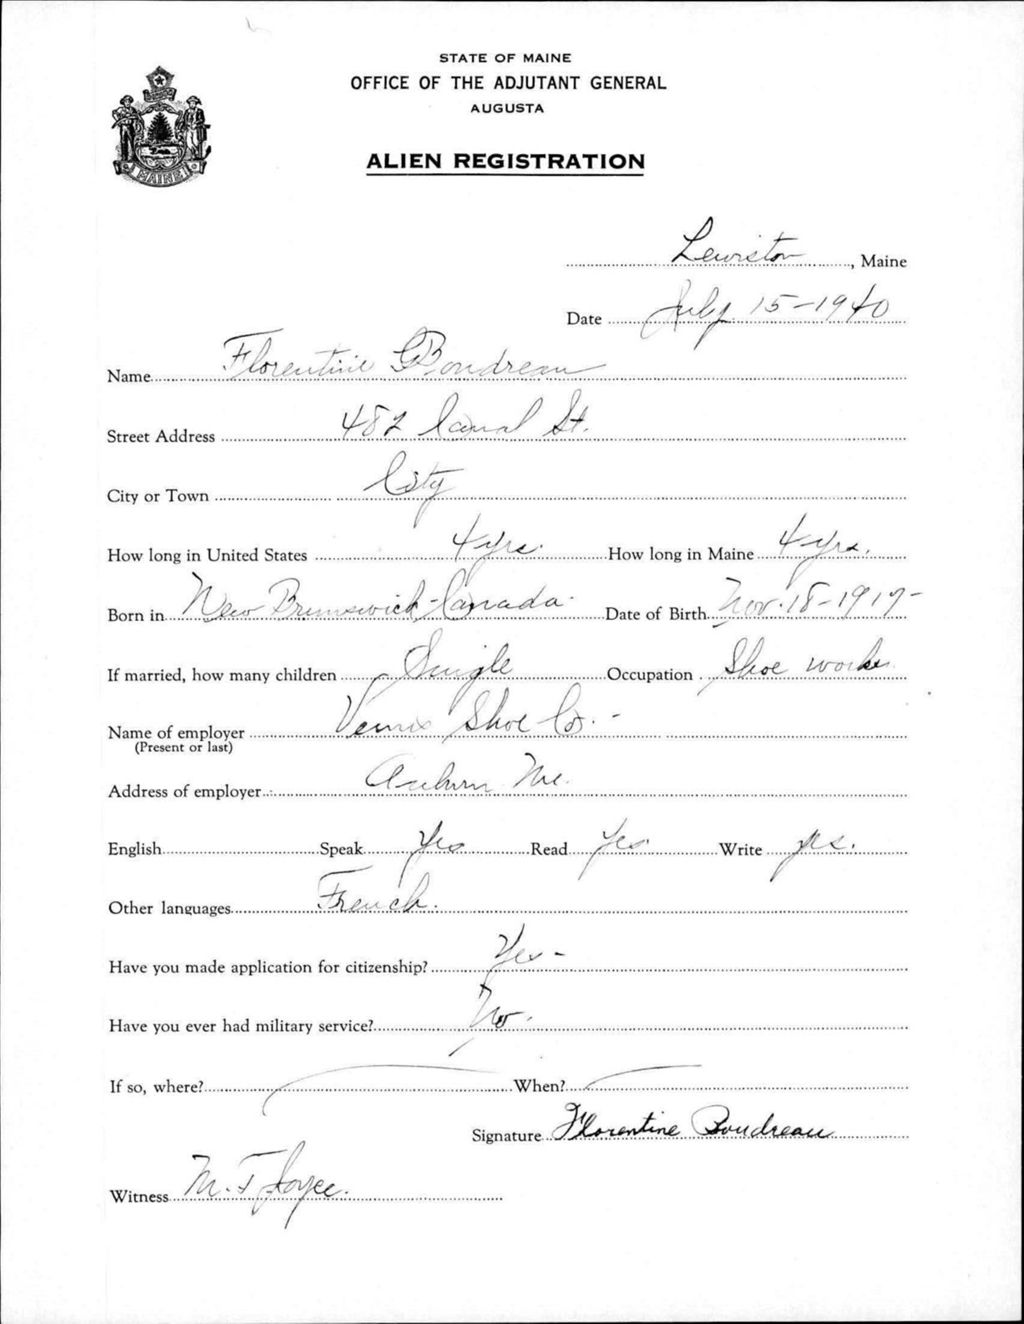 STATE OF MAINE
OFFICE OF THE ADJUTANT GENERAL
AUGUSTA
ALIEN REGISTRATION
MAINE
Lewiston, Maine
Date July 15-1940
Name Florentine Boudreau
Street Address 482 Canal St.
City or Town City
How long in United States 4 yrs. How long in Maine 4 yrs.
Born in New Brunswick-Canada. Date of Birth Nov. 18-1917-
If married, how many children Single Occupation Shoe worker
Name of employer Shoe Co. -
(Present or last)
Address of employer Auburn Me.
English Speak Yes Read Yes Write yes.
Other languages French.
Have you made application for citizenship? Yes-
Have you ever had military service? No.
If so, where? When?
Signature Florentine Boudreau
Witness M. F. Joyce.